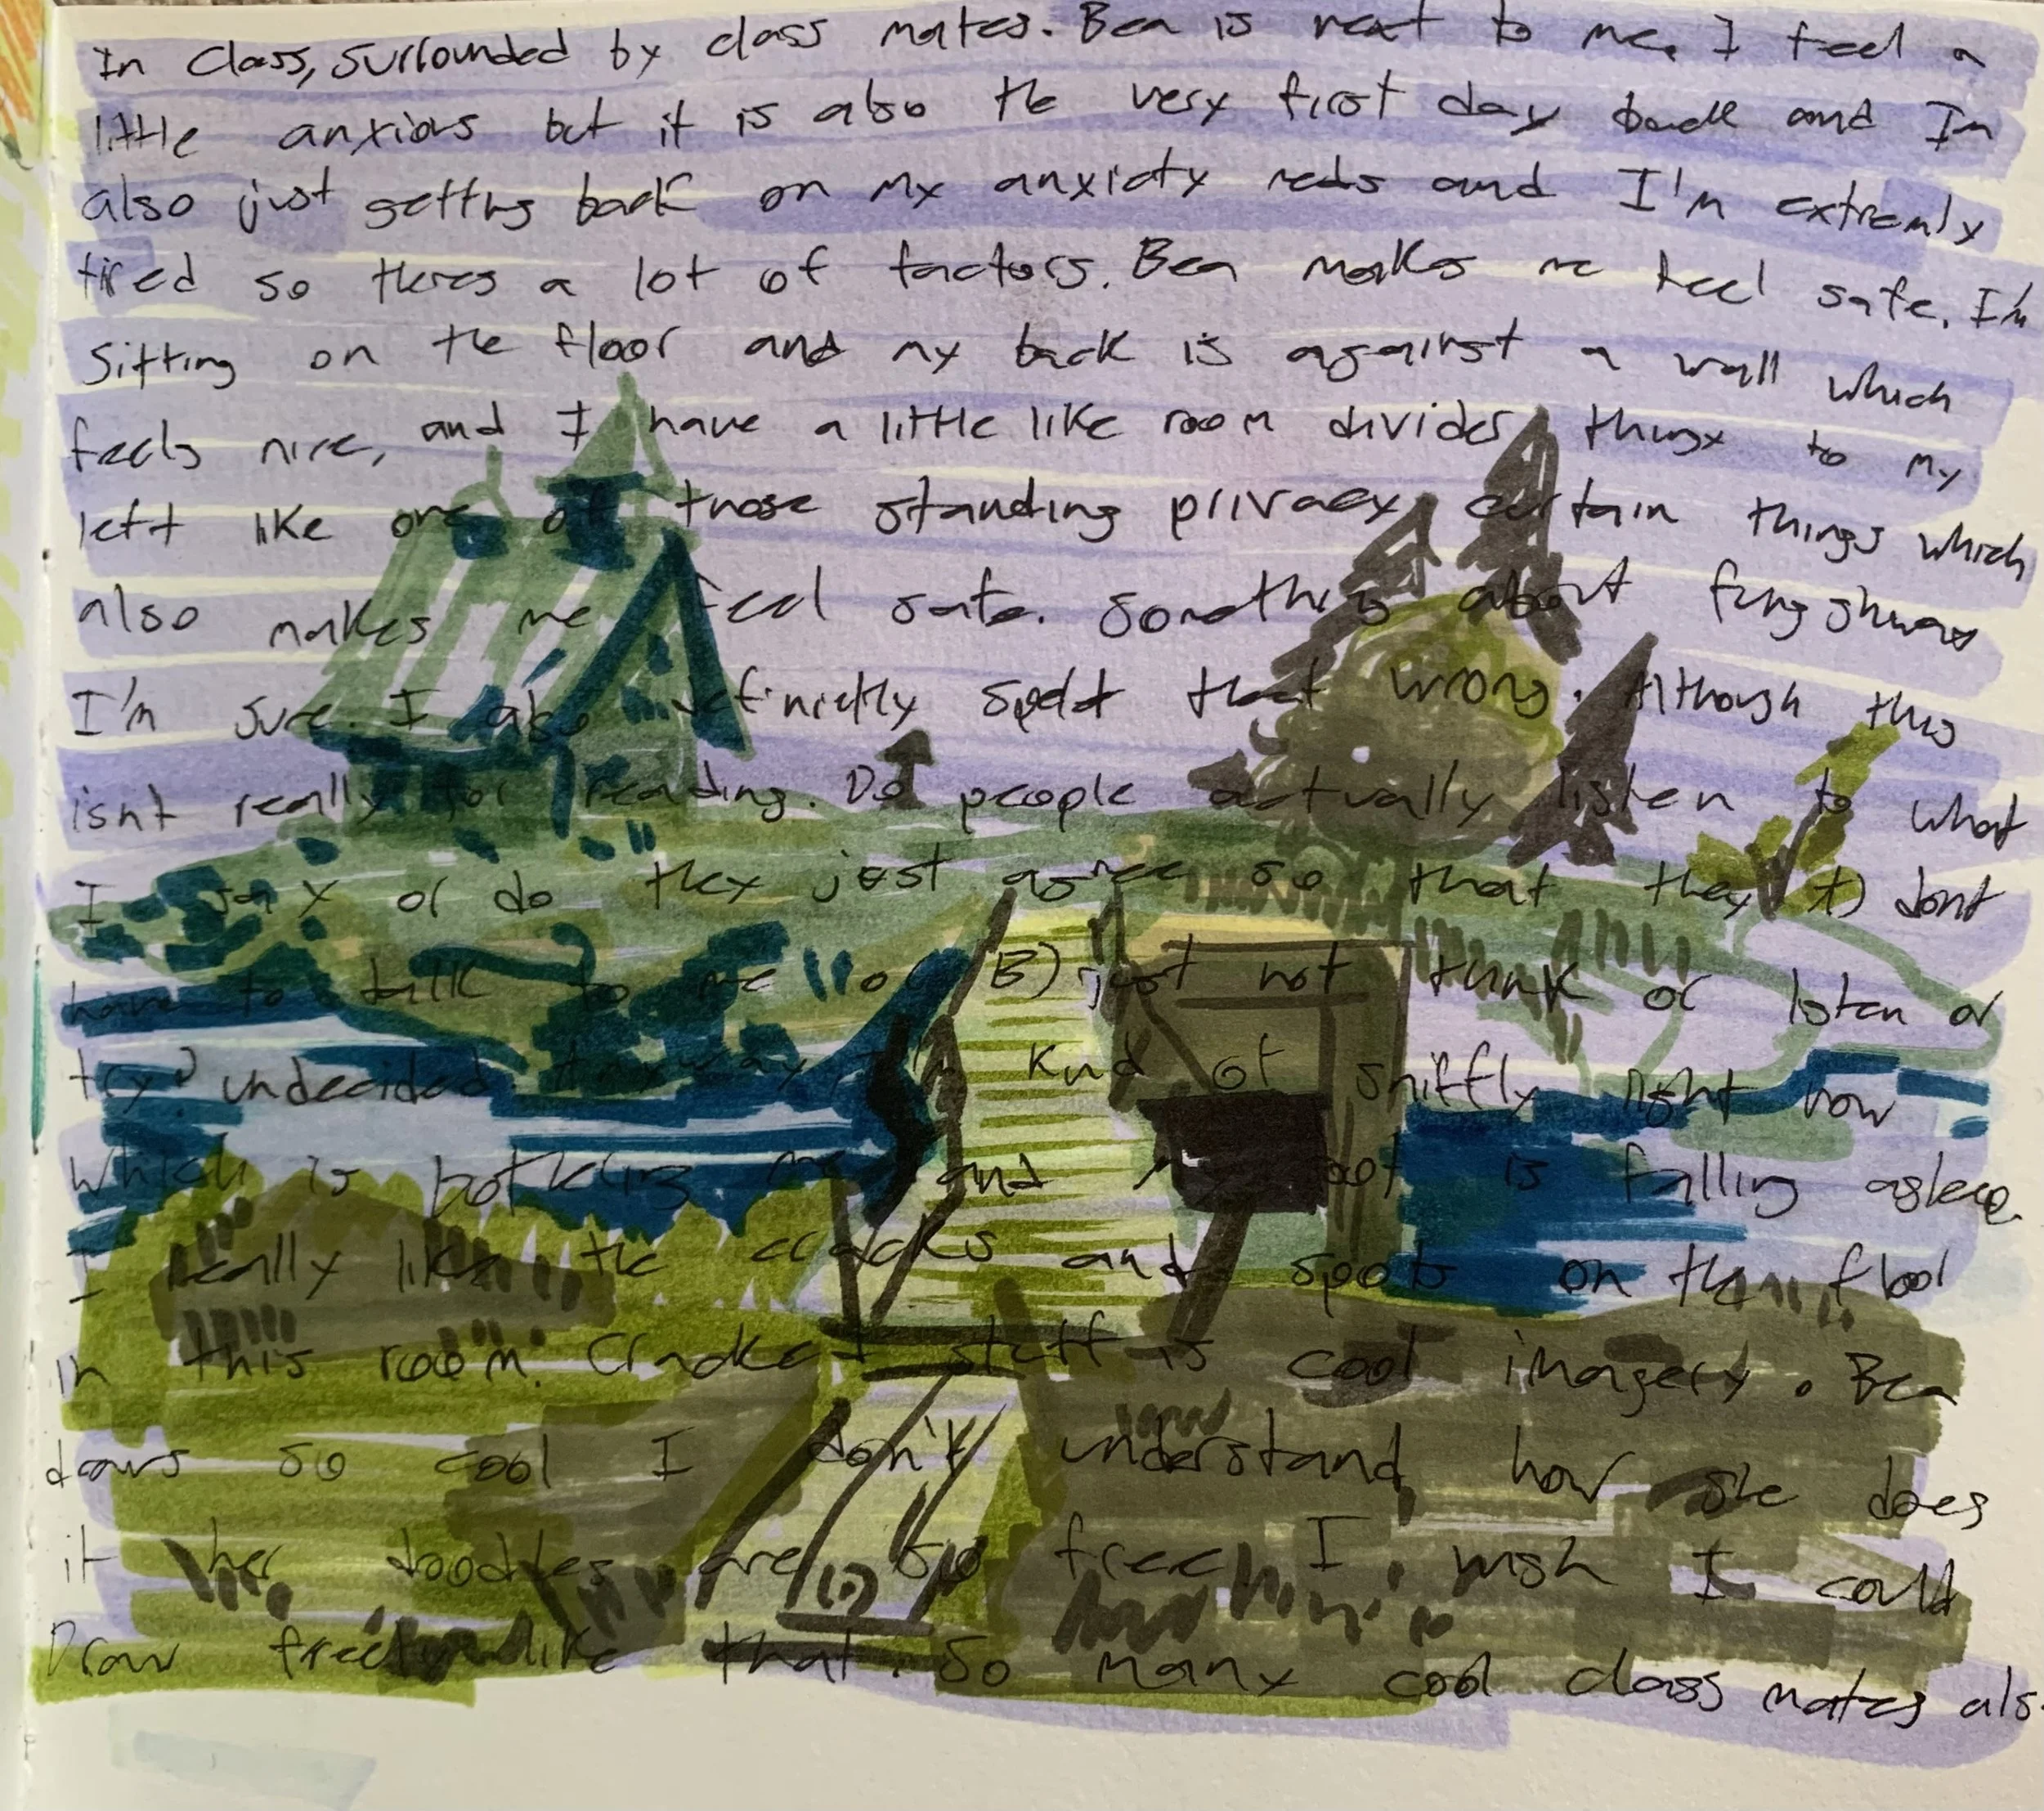 In class, surrounded by class mates. Bea is next to me. I feel a
little anxious but it is also the very first day back and Im
also just getting back on my anxiety meds and I'm extremly
tired so theres a lot of factors. Bea makes me feel safe. I'm
Sitting on the floor and my back is against a wall which
feels nice, and I have a little like room divider thingy to my
left like one of those standing privacy curtain things which
also makes me feel safe. Something about fung shway
I'm sure. I also definietly spelt that wrong. Although this
isnt really for reading. Do people actually listen to what
I say or do they just agree so that they A) dont
have to talk to me or B) just not think or listen or
try? undecided. Anyway, I'm kind of sniffly right now
which is bothering me and my foot is falling asleep.
I really like the cracks and spots on the floor
in this room. Cracked stuff is cool imagery. Bea
draws so cool I don't understand how she does
it her doodles are so free I wish I could
Draw freely like that. So many cool class mates als